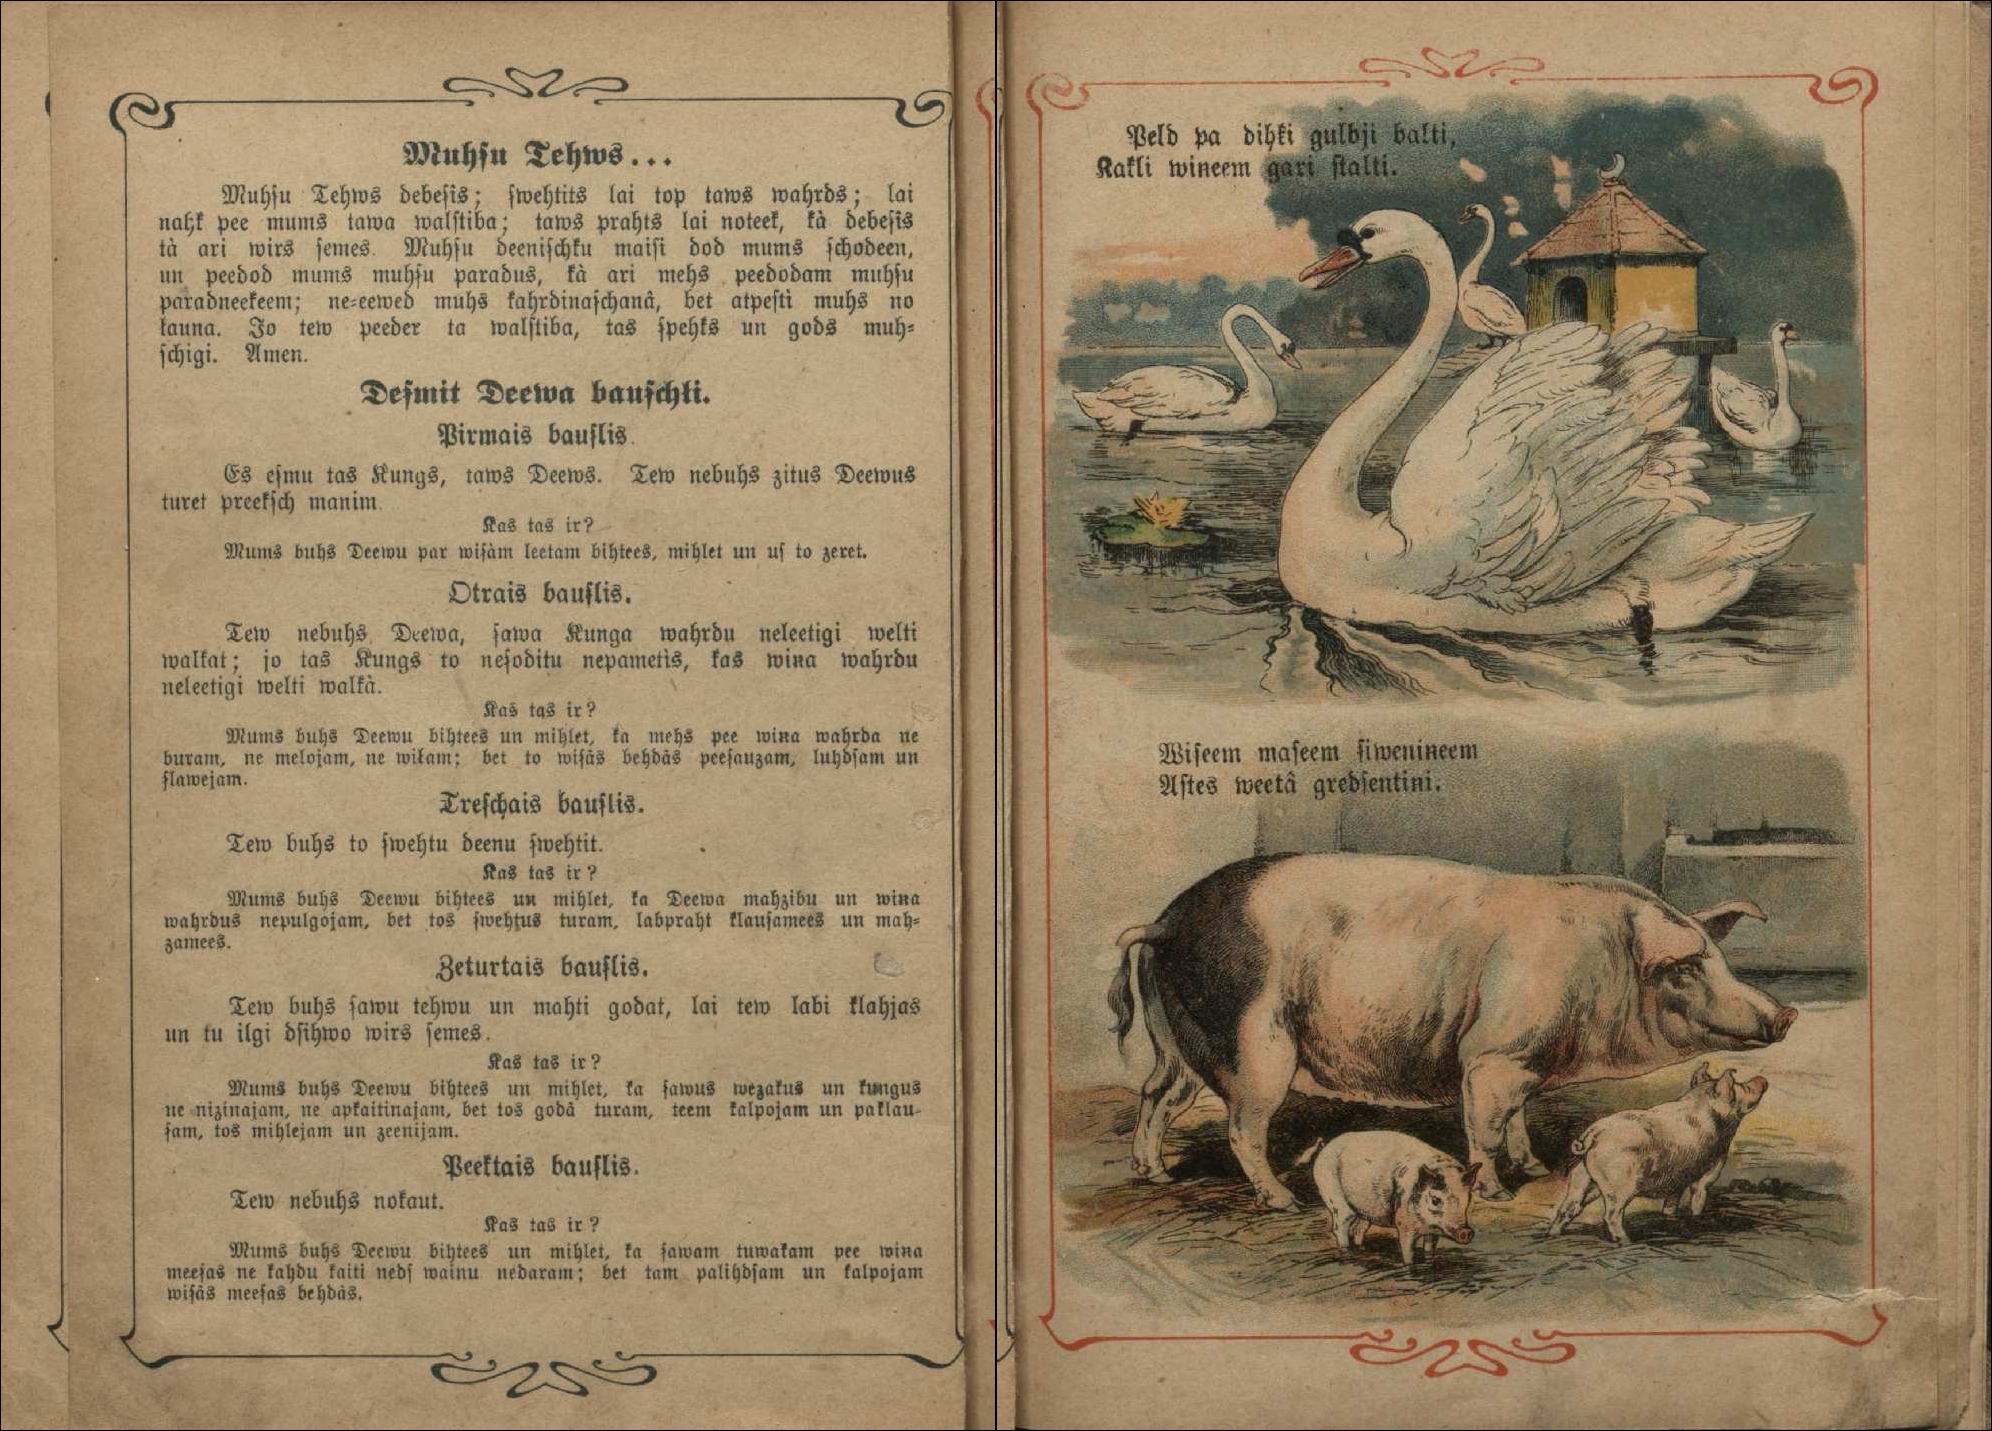 Muhſu Tehws...
Muhſu Tehws debeſîs; ſwehtits lai top taws wahrds; lai
nahk pee mums tawa walſtiba; taws prahts lai noteek, kà debeſîs
tà ari wirs ſemes. Muhſu deeniſchku maiſi dod mums ſchodeen,
un peedod mums muhſu paradus, kà ari mehs peedodam muhſu
paradneekeem; ne-eewed muhs kahrdinaſchanâ, bet atpeſti muhs no
ł̧auna. Jo tew peeder ta walſtiba, tas ſpehks un gods muh-
ſchigi. Amen.
Deſmit Deewa bauſchli.
Pirmais bauſlis.
Es eſmu tas Kungs, taws Deews. Tew nebuhs zitus Deewus
turet preekſch manim.
Kas tas ir?
Mums buhs Deewu par wiſàm leetam bihtees, mihlet un uſ to zeret.
Otrais bauſlis.
Tew nebuhs Deewa, ſawa Kunga wahrdu neleetigi welti
walkat; jo tas Kungs to neſoditu nepametîs, kas wiņa wahrdu
neleetigi welti walkà.
Kas tas ir?
Mums buhs Deewu bihtees un mihlet, ka mehs pee wiņa wahrda ne
buram, ne melojam, ne wiłam; bet to wiſâs behdâs peeſauzam, luhdſam un
ſlawejam.
Treſchais bauſlis.
Tew buhs to ſwehtu deenu ſwehtit.
Kas tas ir?
Mums buhs Deewu bihtees un mihlet, ka Deewa mahzibu un wiņa
wahrdus nepulgojam, bet tos ſwehtus turam, labpraht klauſamees un mah-
zamees.
Zeturtais bauſlis.
Tew buhs ſawu tehwu un mahti godat, lai tew labi klahjas
un tu ilgi dſihwo wirs ſemes.
Kas tas ir?
Mums buhs Deewu bihtees un mihlet, ka ſawus wezakus un kungus
ne nizinajam, ne apkaitinajam, bet tos godâ turam, teem kalpojam un paklau-
ſam, tos mihlejam un zeenijam.
Peektais bauſlis.
Tew nebuhs nokaut.
Kas tas ir?
Mums buhs Deewu bihtees un mihlet, ka ſawam tuwakam pee wiņa
meeſas ne kahdu kaiti nedſ wainu nedaram; bet tam palihdſam un kalpojam
wiſâs meeſas behdâs.
Peld pa dihki gulbji balti,
Kakli wineem gari ſtalti.
Wiſeem maſeem ſiweniņeem
Aſtes weetâ gredſentiņi.